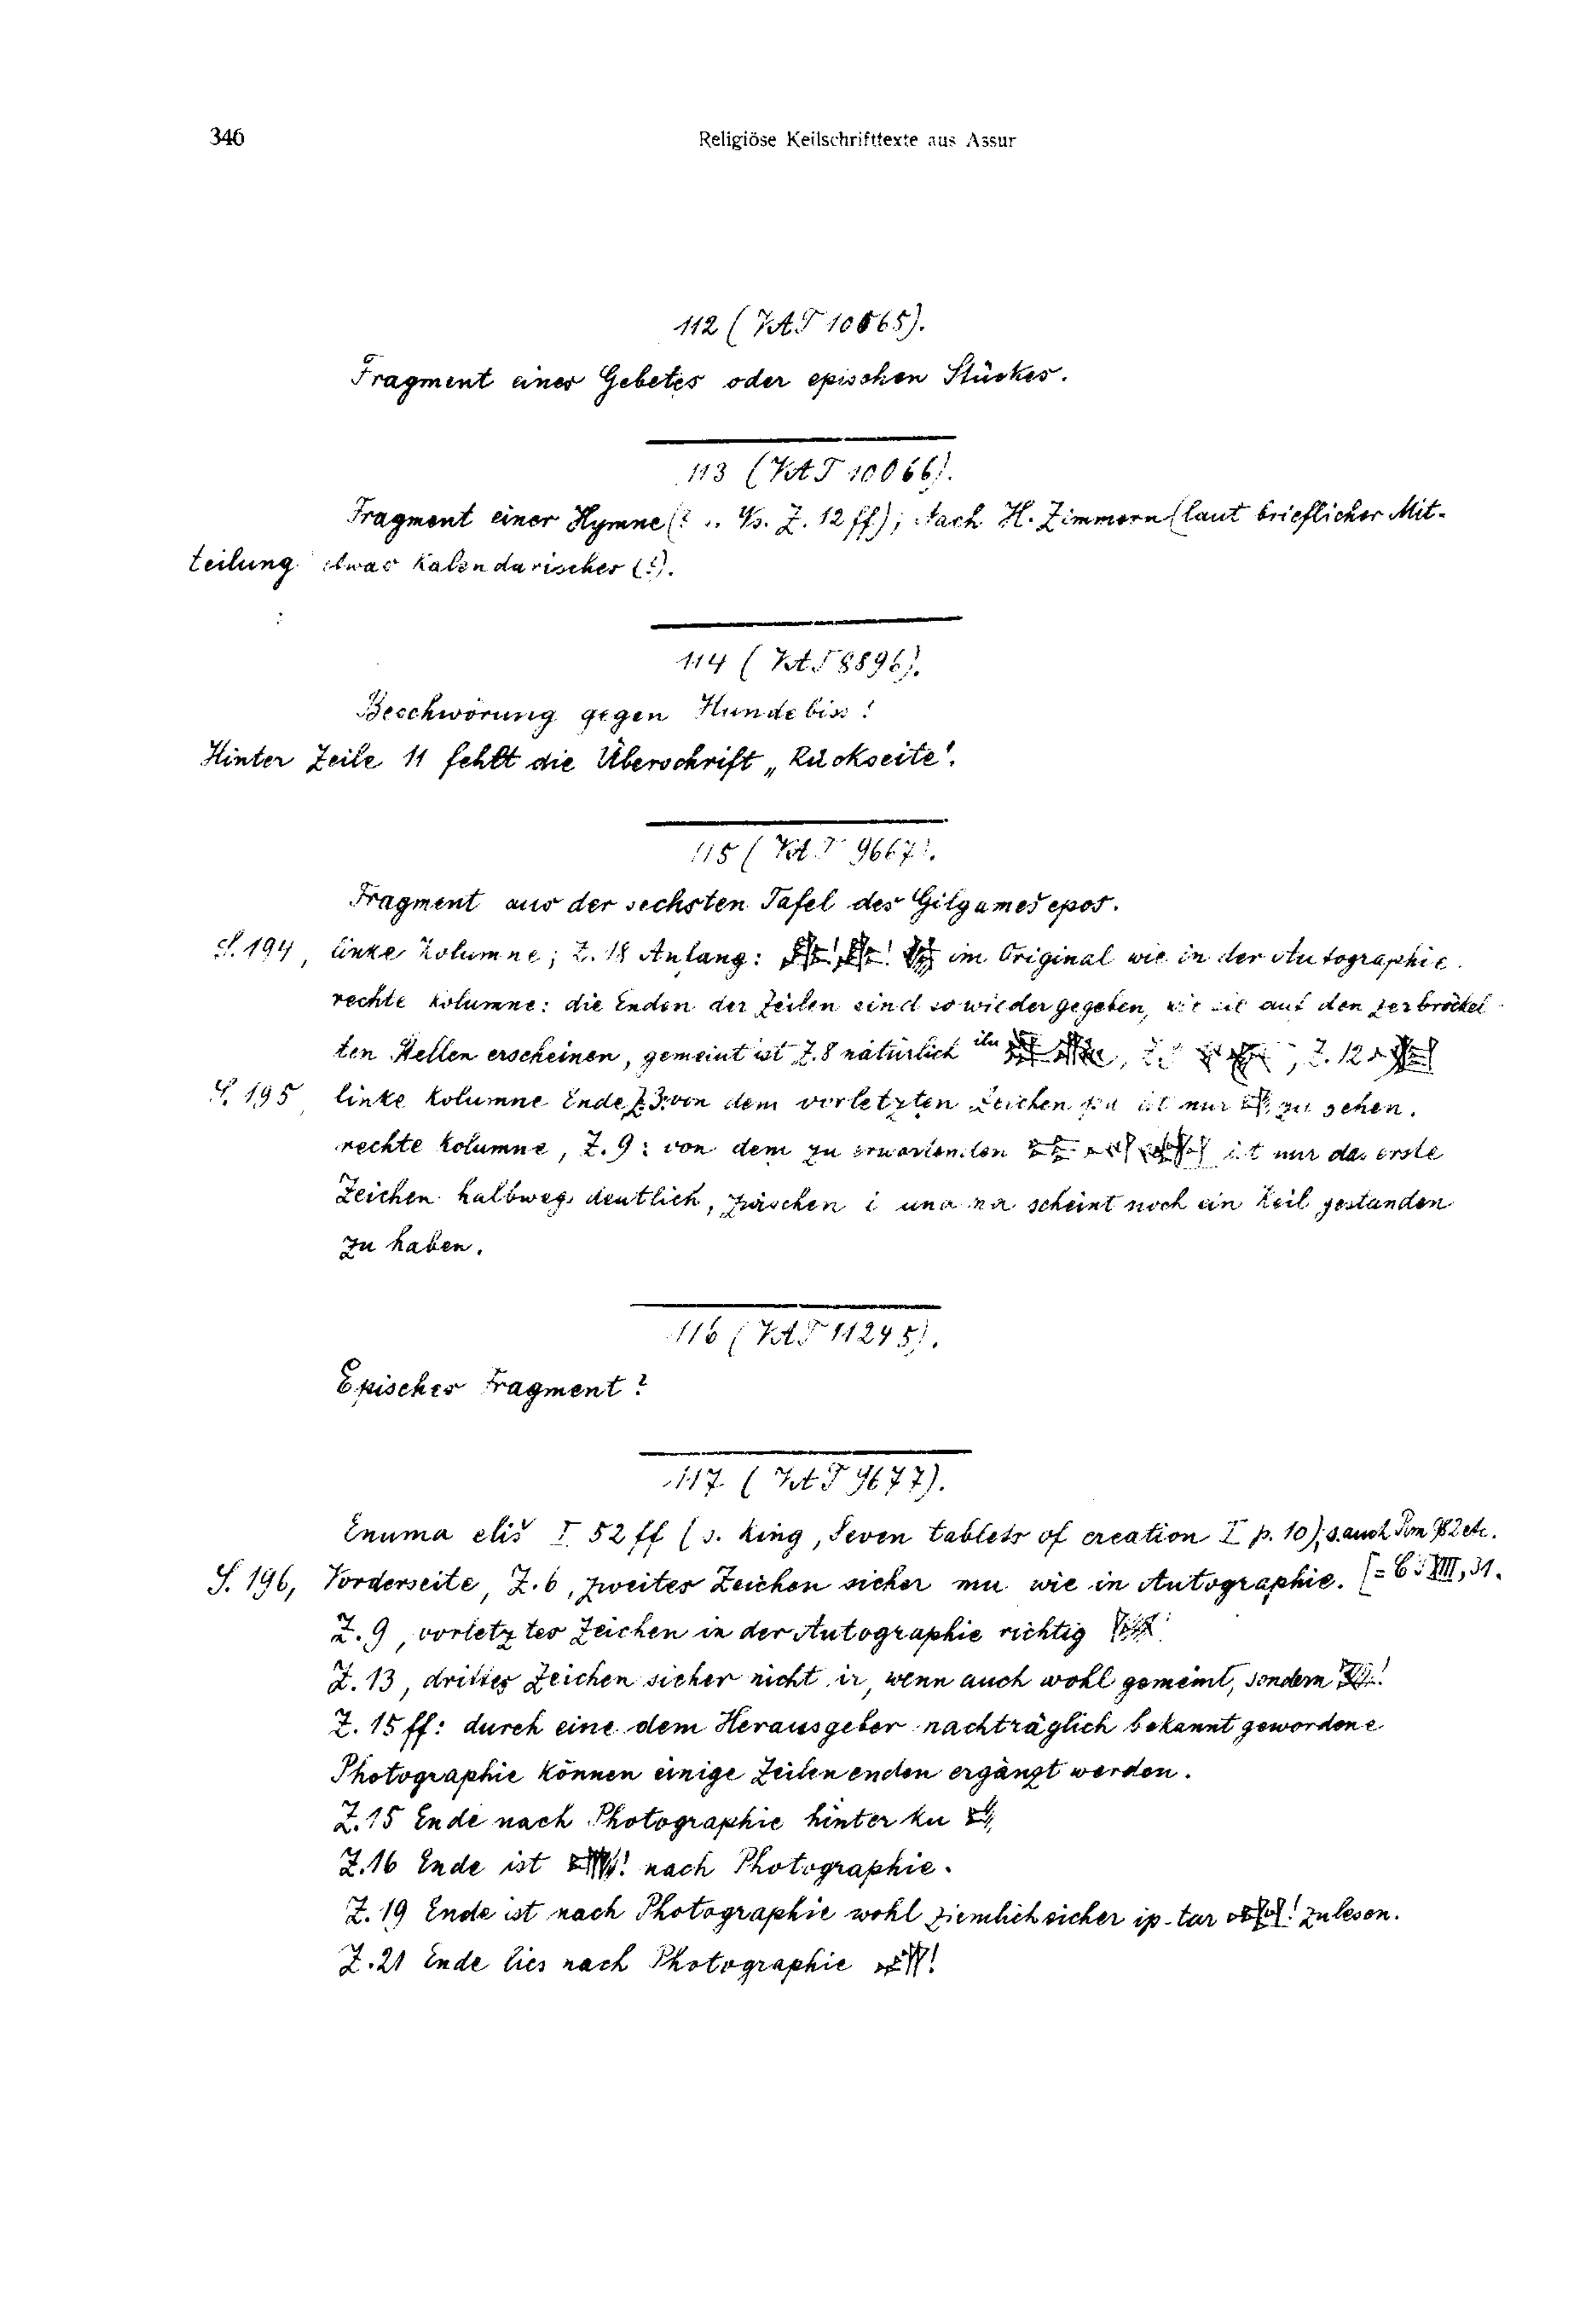 346
Religiöse Keilschrifttexte aus Assur
112 (VAT 10065).
Fragment eines Gebetes oder epischen Stückes.
113 (VAT 10066).
Fragment einer Hymne (? Vs. Z. 12 ff); Nach H. Zimmern (laut brieflicher Mit-
teilung etwas Kalendarisches (?).
114 (VAT 8896).
Beschwörung gegen Hundebiss!
Hinter Zeile 11 fehlt die Überschrift „Rückseite".
115 (VAT 9667).
Fragment aus der sechsten Tafel des Gilgamešepos.
S. 194, linke Kolumne; Z. 18 Anfang: im Original wie in der Autographie.
rechte Kolumne: die Enden der Zeilen sind so wiedergegeben, wie sie auf den zerbröckel-
ten Stellen erscheinen, gemeint ist Z. 8 natürlich ilu , Z. 12
S. 195 linke Kolumne Ende Z. 3: von dem vorletzten Zeichen ist nur zu sehen.
rechte Kolumne, Z. 9: von dem zu erwartenden ist nur das erste
Zeichen halbwegs deutlich, zwischen i und na scheint noch ein Keil gestanden
zu haben.
116 (VAT 11245).
Episches Fragment?
117 (VAT 9677).
Enuma eliš I 52 ff (s. King, Seven tablets of creation I p. 10); s. auch Rm 982 etc.
S. 196, Vorderseite, Z. 6, zweites Zeichen sicher mu wie in Autographie. [= XIII, 31.
Z. 9, vorletztes Zeichen in der Autographie richtig
Z. 13, drittes Zeichen sicher nicht ir, wenn auch wohl gemeint, sondern !
Z. 15 ff: durch eine dem Herausgeber nachträglich bekannt gewordene
Photographie können einige Zeilenenden ergänzt werden.
Z. 15 Ende nach Photographie hinter ku
Z. 16 Ende ist ! nach Photographie.
Z. 19 Ende ist nach Photographie wohl ziemlich sicher ip-tar ! zu lesen.
Z. 21 Ende lies nach Photographie !